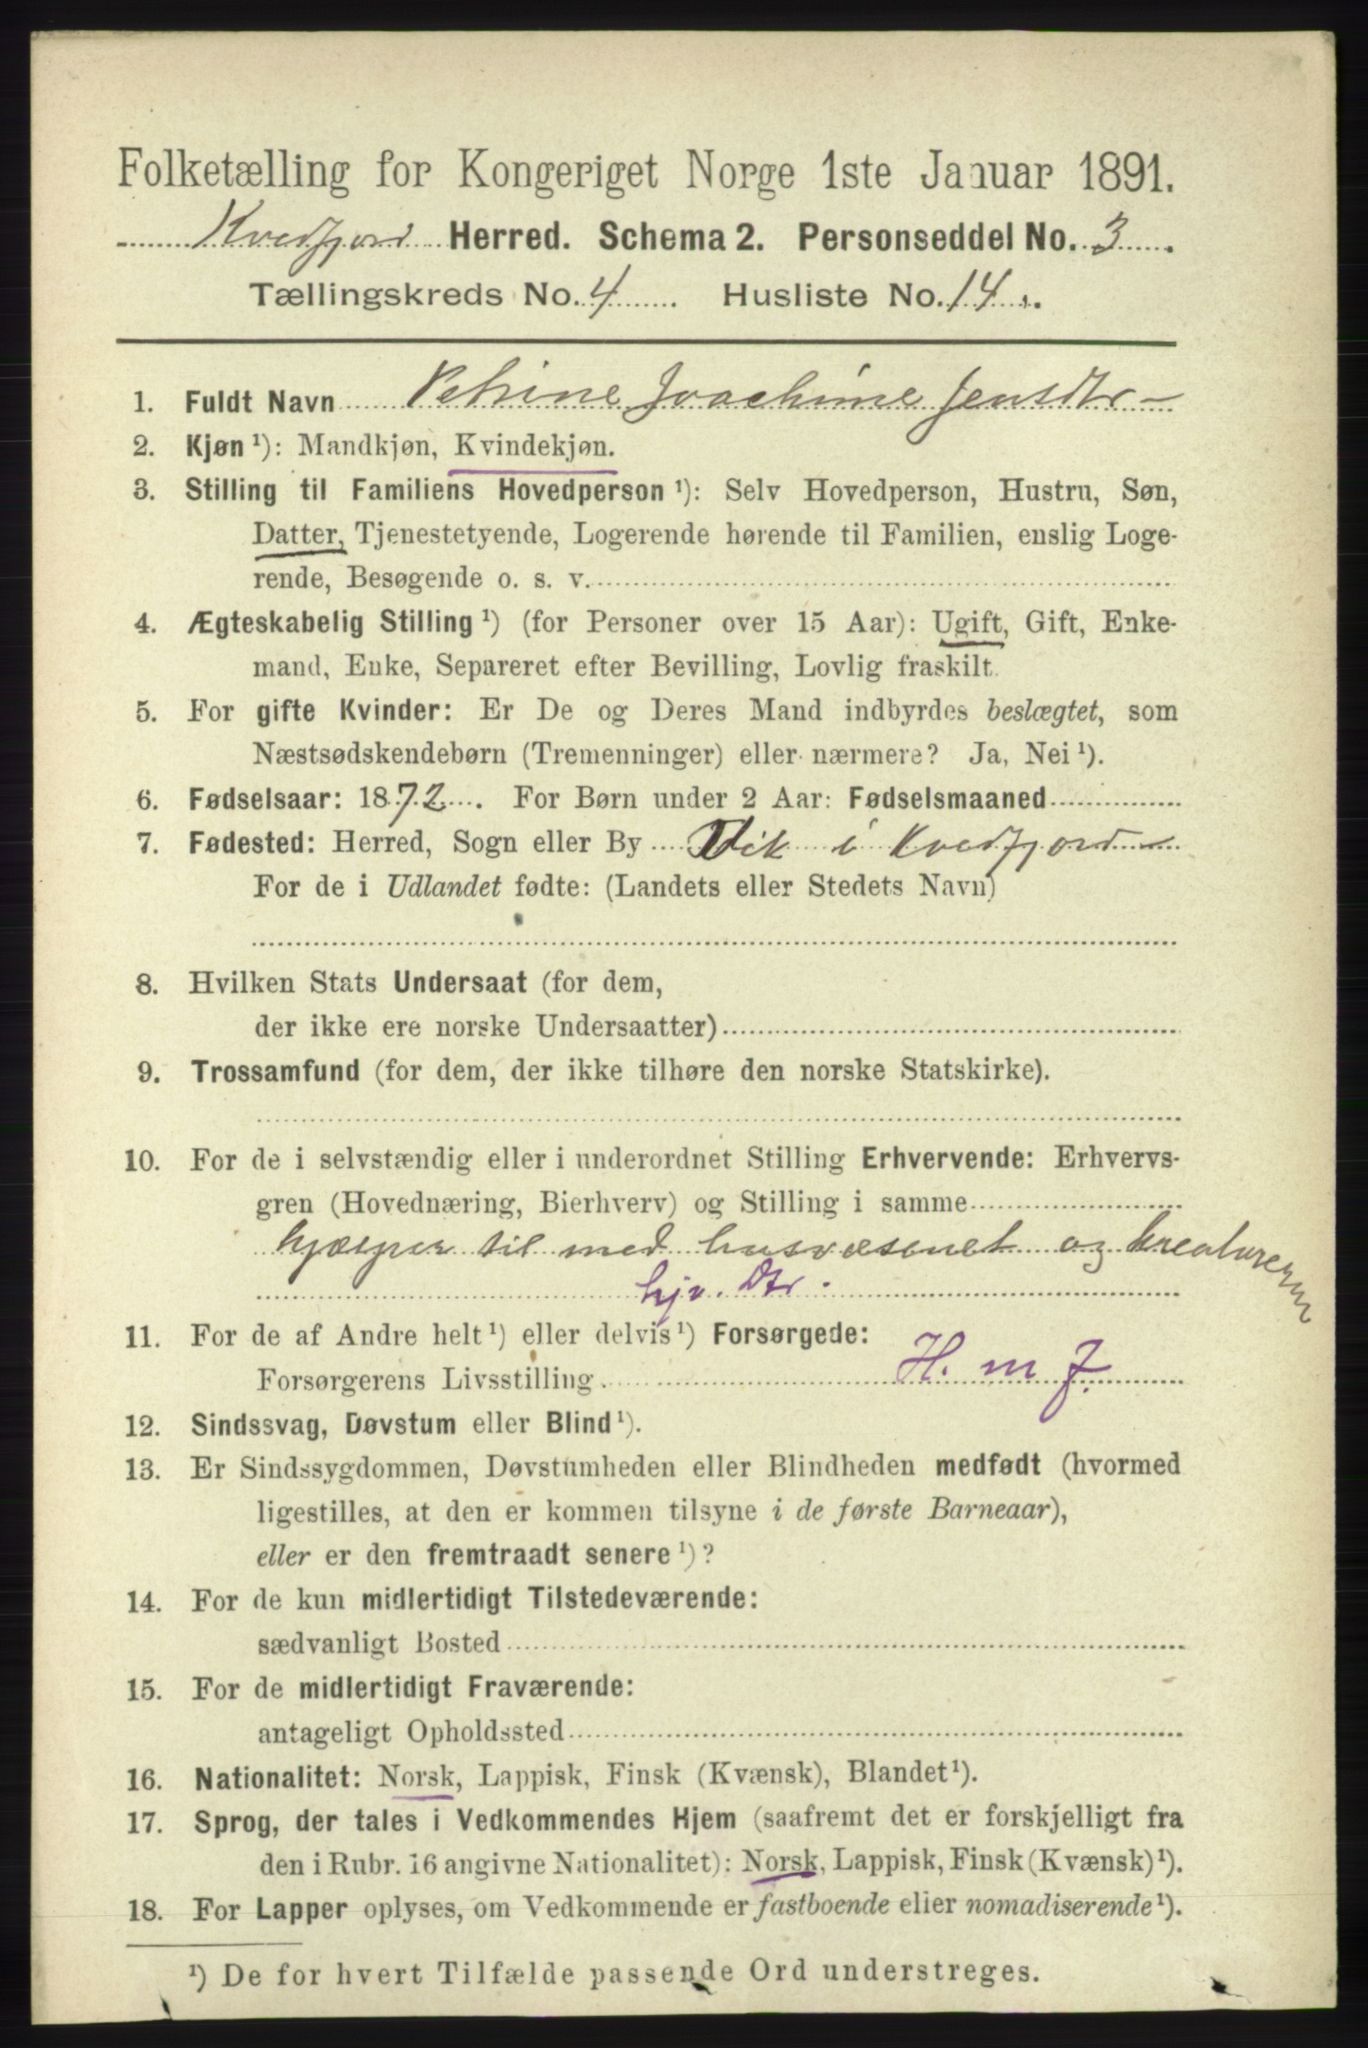 Folketælling for Kongeriget Norge 1ste Januar 1891.
Kvedfjord Herred. Schema 2. Personseddel No. 3.
Tællingskreds No. 4 Husliste No. 14.
1. Fuldt Navn Petrine Joachime Jensdtr
2. Kjøn ¹): Mandkjøn, Kvindekjøn.
3. Stilling til Familiens Hovedperson ¹): Selv Hovedperson, Hustru, Søn,
Datter, Tjenestetyende, Logerende hørende til Familien, enslig Loge-
rende, Besøgende o. s. v.
4. Ægteskabelig Stilling ¹) (for Personer over 15 Aar): Ugift, Gift, Enke-
mand, Enke, Separeret efter Bevilling, Lovlig fraskilt.
5. For gifte Kvinder: Er De og Deres Mand indbyrdes beslægtet, som
Næstsødskendebørn (Tremenninger) eller nærmere? Ja, Nei ¹).
6. Fødselsaar: 1872. For Børn under 2 Aar: Fødselsmaaned
7. Fødested: Herred, Sogn eller By Vik i Kvedfjord
For de i Udlandet fødte: (Landets eller Stedets Navn)
8. Hvilken Stats Undersaat (for dem,
der ikke ere norske Undersaatter)
9. Trossamfund (for dem, der ikke tilhøre den norske Statskirke).
10. For de i selvstændig eller i underordnet Stilling Erhvervende: Erhvervs-
gren (Hovednæring, Bierhverv) og Stilling i samme
hjælper til med husvæsenet og kreaturerne
hjv. Dtr.
11. For de af Andre helt ¹) eller delvis ¹) Forsørgede:
Forsørgerens Livsstilling H. m f.
12. Sindssvag, Døvstum eller Blind ¹).
13. Er Sindssygdommen, Døvstumheden eller Blindheden medfødt (hvormed
ligestilles, at den er kommen tilsyne i de første Barneaar),
eller er den fremtraadt senere ¹)?
14. For de kun midlertidigt Tilstedeværende:
sædvanligt Bosted
15. For de midlertidigt Fraværende:
antageligt Opholdssted
16. Nationalitet: Norsk, Lappisk, Finsk (Kvænsk), Blandet ¹).
17. Sprog, der tales i Vedkommendes Hjem (saafremt det er forskjelligt fra
den i Rubr. 16 angivne Nationalitet): Norsk, Lappisk, Finsk (Kvænsk) ¹).
18. For Lapper oplyses, om Vedkommende er fastboende eller nomadiserende ¹).
¹) De for hvert Tilfælde passende Ord understreges.